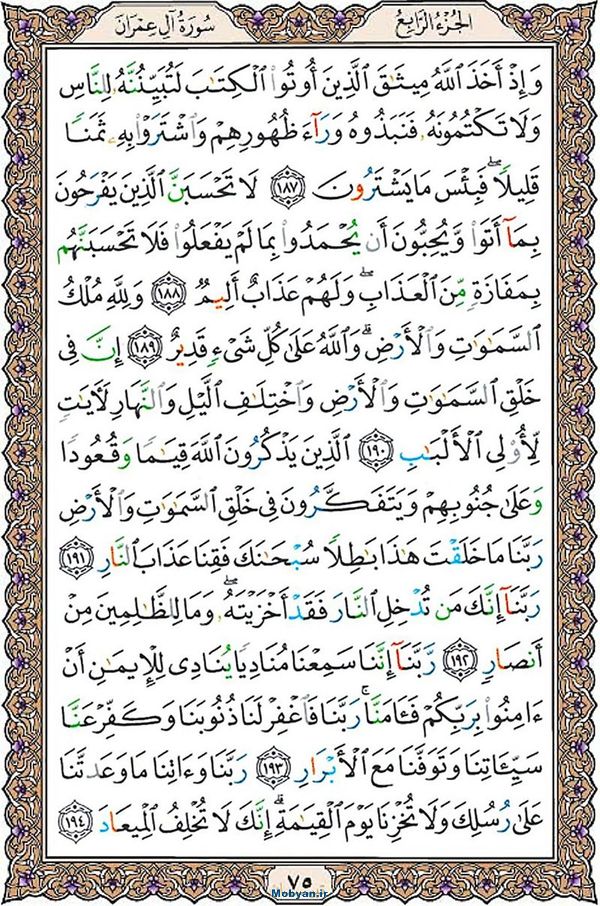 الجُزءُ الرَّابِعُ
سُورَةُ آلِ عِمرَان
وَإِذْ أَخَذَ ٱللَّهُ مِيثَٰقَ ٱلَّذِينَ أُوتُوا۟ ٱلْكِتَٰبَ لَتُبَيِّنُنَّهُۥ لِلنَّاسِ
وَلَا تَكْتُمُونَهُۥ فَنَبَذُوهُ وَرَآءَ ظُهُورِهِمْ وَٱشْتَرَوْا۟ بِهِۦ ثَمَنًا
قَلِيلًا ۖ فَبِئْسَ مَا يَشْتَرُونَ ١٨٧ لَا تَحْسَبَنَّ ٱلَّذِينَ يَفْرَحُونَ
بِمَآ أَتَوا۟ وَّيُحِبُّونَ أَن يُحْمَدُوا۟ بِمَا لَمْ يَفْعَلُوا۟ فَلَا تَحْسَبَنَّهُم
بِمَفَازَةٍ مِّنَ ٱلْعَذَابِ ۖ وَلَهُمْ عَذَابٌ أَلِيمٌ ١٨٨ وَلِلَّهِ مُلْكُ
ٱلسَّمَٰوَٰتِ وَٱلْأَرْضِ ۗ وَٱللَّهُ عَلَىٰ كُلِّ شَىْءٍ قَدِيرٌ ١٨٩ إِنَّ فِى
خَلْقِ ٱلسَّمَٰوَٰتِ وَٱلْأَرْضِ وَٱخْتِلَٰفِ ٱلَّيْلِ وَٱلنَّهَارِ لَـَٔايَٰتٍ
لِّأُو۟لِى ٱلْأَلْبَٰبِ ١٩٠ ٱلَّذِينَ يَذْكُرُونَ ٱللَّهَ قِيَٰمًا وَقُعُودًا
وَعَلَىٰ جُنُوبِهِمْ وَيَتَفَكَّرُونَ فِى خَلْقِ ٱلسَّمَٰوَٰتِ وَٱلْأَرْضِ
رَبَّنَا مَا خَلَقْتَ هَٰذَا بَٰطِلًا سُبْحَٰنَكَ فَقِنَا عَذَابَ ٱلنَّارِ ١٩١
رَبَّنَآ إِنَّكَ مَن تُدْخِلِ ٱلنَّارَ فَقَدْ أَخْزَيْتَهُۥ ۖ وَمَا لِلظَّٰلِمِينَ مِنْ
أَنصَارٍ ١٩٢ رَّبَّنَآ إِنَّنَا سَمِعْنَا مُنَادِيًا يُنَادِى لِلْإِيمَٰنِ أَنْ
ءَامِنُوا۟ بِرَبِّكُمْ فَـَٔامَنَّا ۚ رَبَّنَا فَٱغْفِرْ لَنَا ذُنُوبَنَا وَكَفِّرْ عَنَّا
سَيِّـَٔاتِنَا وَتَوَفَّنَا مَعَ ٱلْأَبْرَارِ ١٩٣ رَبَّنَا وَءَاتِنَا مَا وَعَدتَّنَا
عَلَىٰ رُسُلِكَ وَلَا تُخْزِنَا يَوْمَ ٱلْقِيَٰمَةِ ۗ إِنَّكَ لَا تُخْلِفُ ٱلْمِيعَادَ ١٩٤
٧٥
Mobyan.ir